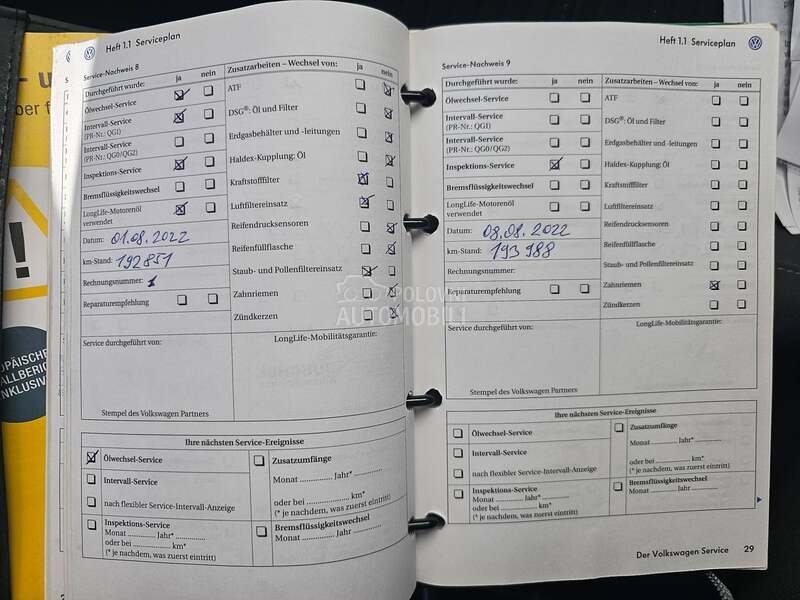 Heft 1.1 Serviceplan
Service-Nachweis 8
Durchgeführt wurde: ja nein
Ölwechsel-Service
Intervall-Service
(PR-Nr.: QG1)
Intervall-Service
(PR-Nr.: QG0/QG2)
Inspektions-Service
Bremsflüssigkeitswechsel
LongLife-Motorenöl
verwendet
Datum: 01.08.2022
km-Stand: 192851
Rechnungsnummer: 1
Reparaturempfehlung
Zusatzarbeiten – Wechsel von: ja nein
ATF
DSG®: Öl und Filter
Erdgasbehälter und -leitungen
Haldex-Kupplung: Öl
Kraftstofffilter
Luftfiltereinsatz
Reifendrucksensoren
Reifenfüllflasche
Staub- und Pollenfiltereinsatz
Zahnriemen
Zündkerzen
Service durchgeführt von:
LongLife-Mobilitätsgarantie:
Stempel des Volkswagen Partners
Ihre nächsten Service-Ereignisse
Ölwechsel-Service
Intervall-Service
nach flexibler Service-Intervall-Anzeige
Inspektions-Service
Monat ......... Jahr* ............
oder bei ............... km*
(* je nachdem, was zuerst eintritt)
Zusatzumfänge
Monat ............ Jahr* ............
oder bei .................. km*
(* je nachdem, was zuerst eintritt)
Bremsflüssigkeitswechsel
Monat ......... Jahr ............
Heft 1.1 Serviceplan
Service-Nachweis 9
Durchgeführt wurde: ja nein
Ölwechsel-Service
Intervall-Service
(PR-Nr.: QG1)
Intervall-Service
(PR-Nr.: QG0/QG2)
Inspektions-Service
Bremsflüssigkeitswechsel
LongLife-Motorenöl
verwendet
Datum: 08.08.2022
km-Stand: 193 988
Rechnungsnummer:
Reparaturempfehlung
Zusatzarbeiten – Wechsel von: ja nein
ATF
DSG®: Öl und Filter
Erdgasbehälter und -leitungen
Haldex-Kupplung: Öl
Kraftstofffilter
Luftfiltereinsatz
Reifendrucksensoren
Reifenfüllflasche
Staub- und Pollenfiltereinsatz
Zahnriemen
Zündkerzen
Service durchgeführt von:
LongLife-Mobilitätsgarantie:
Stempel des Volkswagen Partners
Ihre nächsten Service-Ereignisse
Ölwechsel-Service
Intervall-Service
nach flexibler Service-Intervall-Anzeige
Inspektions-Service
Monat ............ Jahr* ............
oder bei ............... km*
(* je nachdem, was zuerst eintritt)
Zusatzumfänge
Monat ............ Jahr* ............
oder bei .................. km*
(* je nachdem, was zuerst eintritt)
Bremsflüssigkeitswechsel
Monat ............ Jahr ............
Der Volkswagen Service 29
POLOVNI
AUTOMOBILI